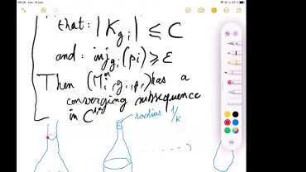 that: |K_{g_i}| ≤ C
and: inj_{g_i}(p_i) ≥ ε
Then (M_i^n, g_i, p_i) has a
converging subsequence
in
radius 1/k